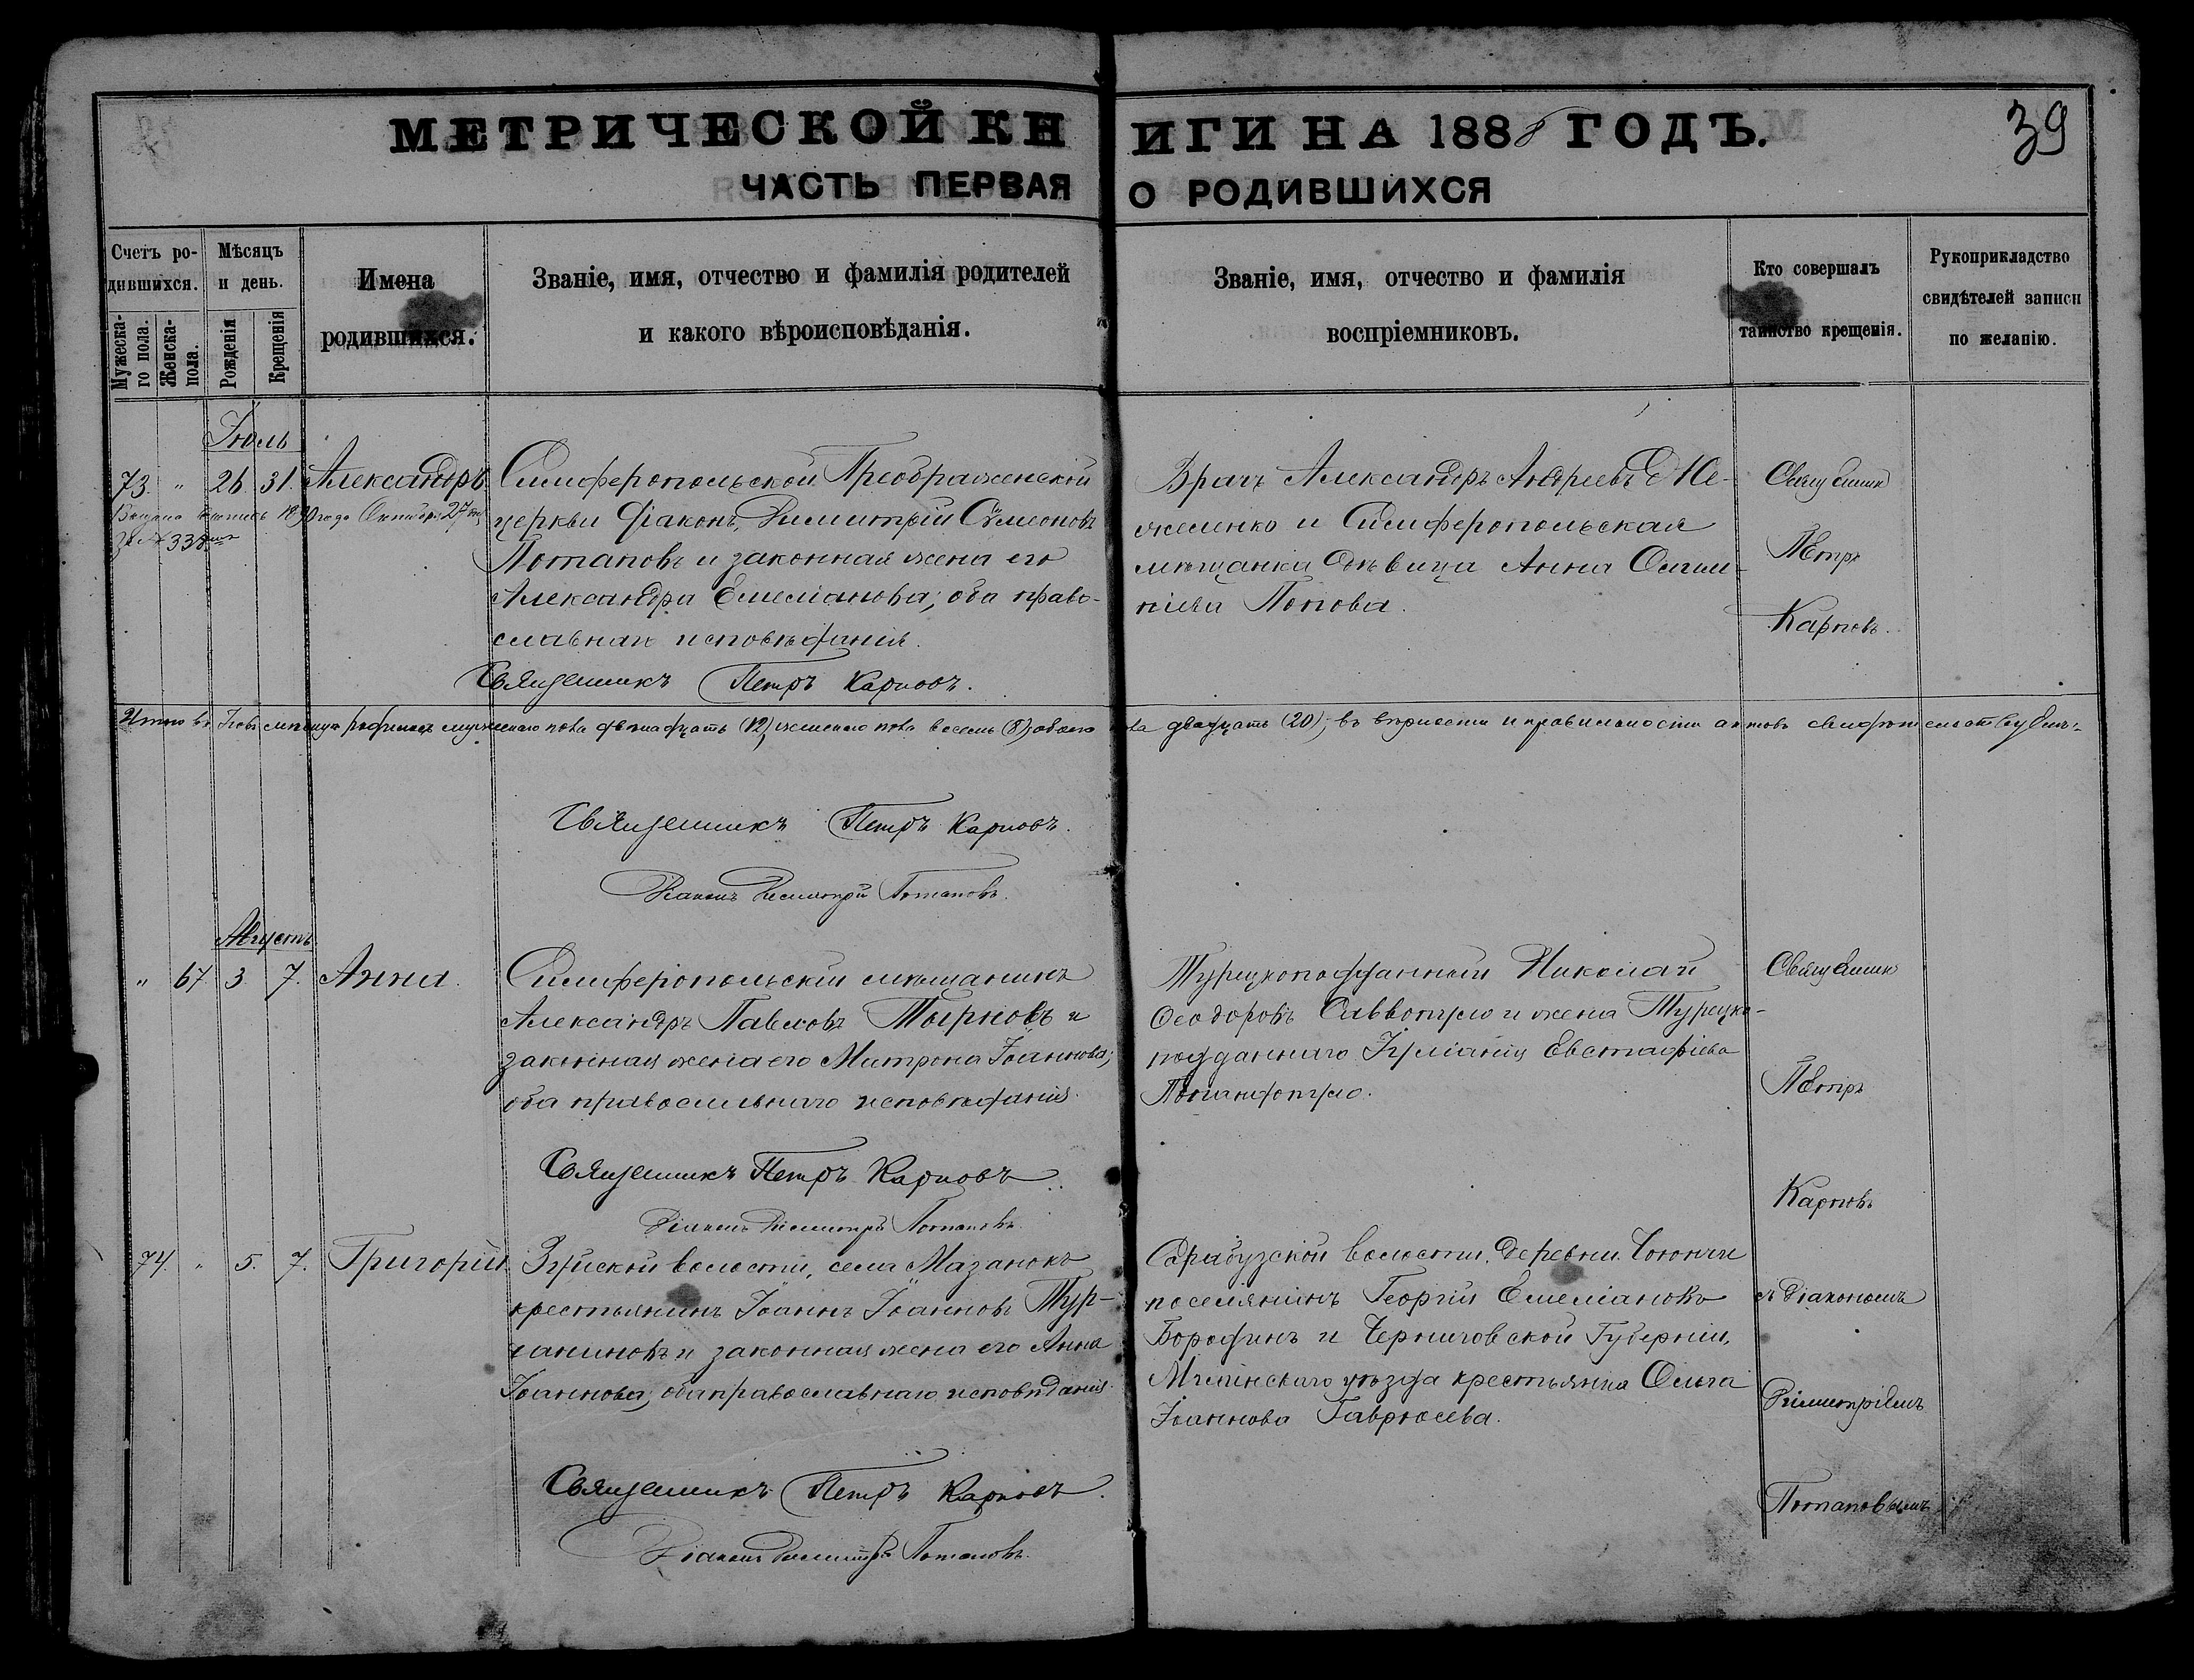 МЕТРИЧЕСКОЙ КНИГИ НА 1888 ГОДЪ.
39
ЧАСТЬ ПЕРВАЯ О РОДИВШИХСЯ
Счетъ родившихся.
Мужескаго пола.
Женска- пола.
Мѣсяцъ и день.
Рожденія
Крещенія
Имена родившихся.
Званіе, имя, отчество и фамилія родителей
и какого вѣроисповѣданія.
Званіе, имя, отчество и фамилія
воспріемниковъ.
Кто совершалъ
таинство крещенія.
Рукоприкладство
свидѣтелей записи
по желанію.
Іюль
73. " 26. 31. Александръ.
1890 года Октября 27
за № 338
Симферопольской Преображенской
церкви Діаконъ, Димитрій Сѵмеоновъ
Потаповъ и законная жена его
Александра Емеліанова; оба право-
славнаго исповѣданія.
Священникъ Петръ Карповъ.
Врачъ Александръ Андреевъ
и Симферопольская
мѣщанка дѣвица Анна
Попова.
Священник
Петръ
Карповъ.
Итого въ Іюлѣ мѣсяцѣ мужескаго пола двѣнадцать (12), женскаго пола восемь (8), обоего пола двадцать (20); въ вѣрности и правильности актовъ
Священникъ Петръ Карповъ.
Діаконъ Димитрій Потаповъ.
Августъ.
" 67. 3. 7. Анна.
Симферопольскій мѣщанинъ
Александръ Павловъ Тырновъ и
законная жена его Матрона Іоаннова;
оба православнаго исповѣданія.
Священникъ Петръ Карповъ.
Діаконъ Димитрій Потаповъ.
Турецкоподданный Николай
Ѳеодоровъ Саввопуло и жена Турецко-
подданнаго Евстафіева
Священник
Петръ
Карповъ
74. " 5. 7. Григорій.
Зуйской волости, села Мазанокъ
крестьянинъ Іоаннъ Іоанновъ
и законная жена его Анна
Іоаннова; оба православнаго исповѣданія.
Священникъ Петръ Карповъ.
Діаконъ Димитрій Потаповъ.
Сарабузской волости, деревни
поселянинъ Георгій Емеліановъ
Бородинъ и Черниговской Губерніи,
Мглинскаго уѣзда крестьянка Ольга
Іоаннова Гаврюсева.
съ Діакономъ
Димитріемъ
Потаповымъ